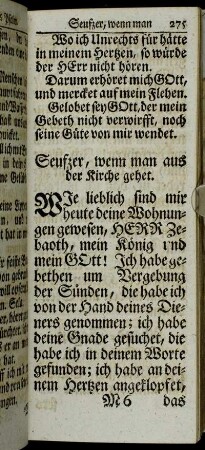 Seufzer, wenn man 275
Wo ich Unrechts für hätte
in meinem Hertzen, so würde
der HErr nicht hören.
Darum erhöret mich GOtt,
und mercket auf mein Flehen.
Gelobet sey GOtt, der mein
Gebeth nicht verwirfft, noch
seine Güte von mir wendet.
Seufzer, wenn man aus
der Kirche gehet.
WJe lieblich sind mir
heute deine Wohnun-
gen gewesen, HERR Ze-
baoth, mein König und
mein GOtt! Ich habe ge-
bethen um Vergebung
der Sünden, die habe ich
von der Hand deines Die-
ners genommen; ich habe
deine Gnade gesuchet, die
habe ich in deinem Worte
gefunden; ich habe an dei-
nem Hertzen angeklopfet,
M 6 das